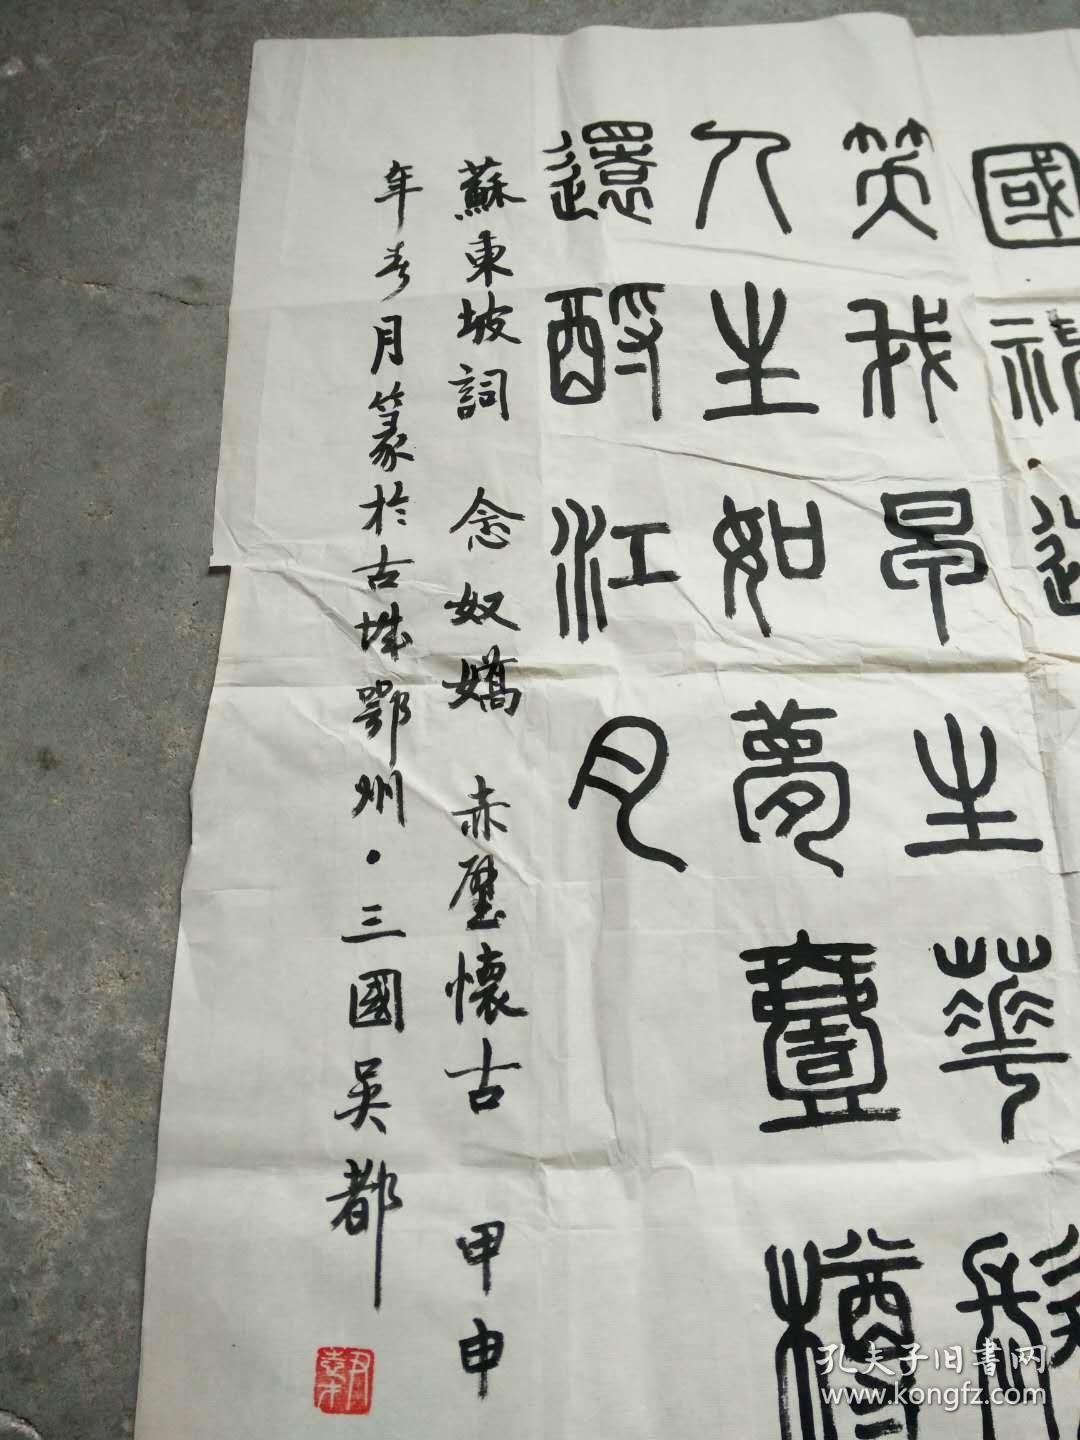 國神遊
笑我早生華髮
人生如夢壹樽
還酹江月
蘇東坡詞 念奴嬌 赤壁懷古 甲申
年春月篆於古城鄂州·三國吳都
孔夫子旧書网
www.kongfz.com